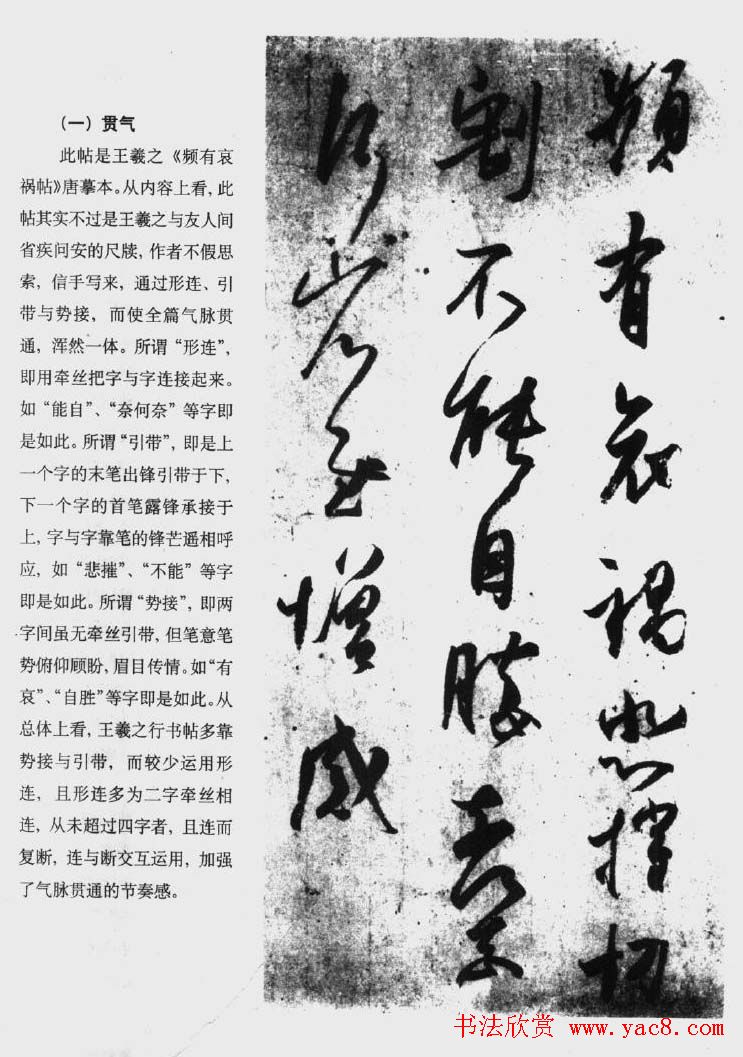 (一)贯气
此帖是王羲之《频有哀
祸帖》唐摹本。从内容上看,此
帖其实不过是王羲之与友人间
省疾问安的尺牍,作者不假思
索,信手写来,通过形连、引
带与势接,而使全篇气脉贯
通,浑然一体。所谓“形连”,
即用牵丝把字与字连接起来。
如“能自”、“奈何奈”等字即
是如此。所谓“引带”,即是上
一个字的末笔出锋引带于下,
下一个字的首笔露锋承接于
上,字与字靠笔的锋芒遥相呼
应,如“悲摧”、“不能”等字
即是如此。所谓“势接”,即两
字间虽无牵丝引带,但笔意笔
势俯仰顾盼,眉目传情。如“有
哀”、“自胜”等字即是如此。从
总体上看,王羲之行书帖多靠
势接与引带,而较少运用形
连,且形连多为二字牵丝相
连,从未超过四字者,且连而
复断,连与断交互运用,加强
了气脉贯通的节奏感。
頻有哀禍悲摧切
割不能自勝奈何奈
何省慰增感
书法欣赏 www.yac8.com